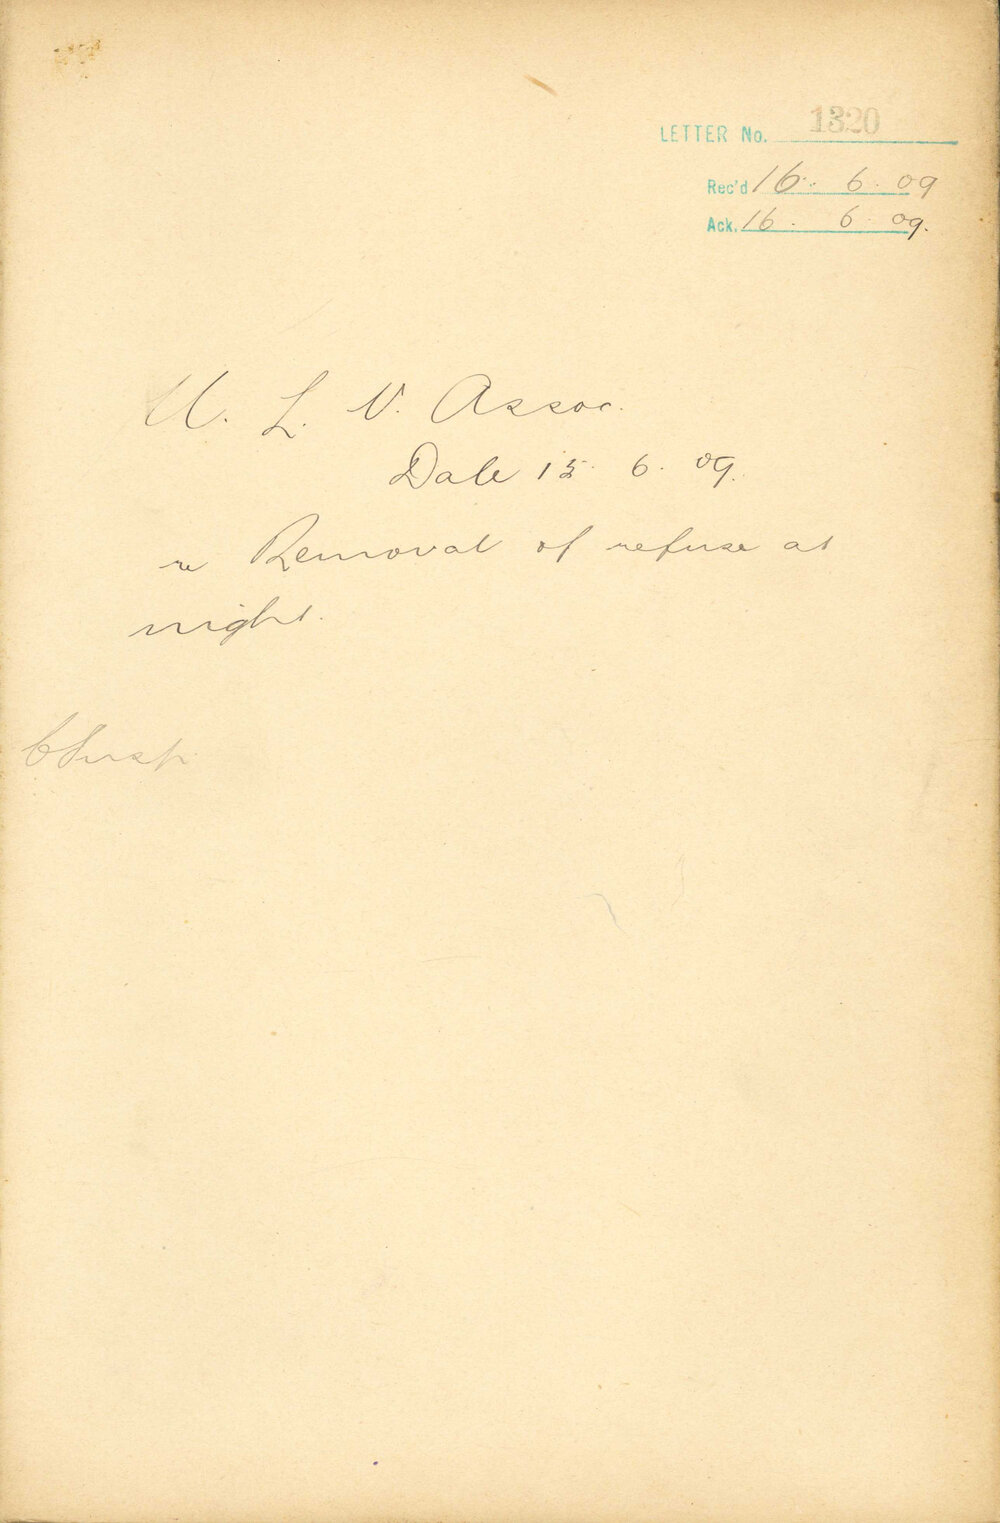 LETTER No. 1320
Rec'd 16. 6. 09
Ack. 16. 6. 09.
U. L. V. Assoc.
Date 15. 6. 09.
re Removal of refuse at
night.